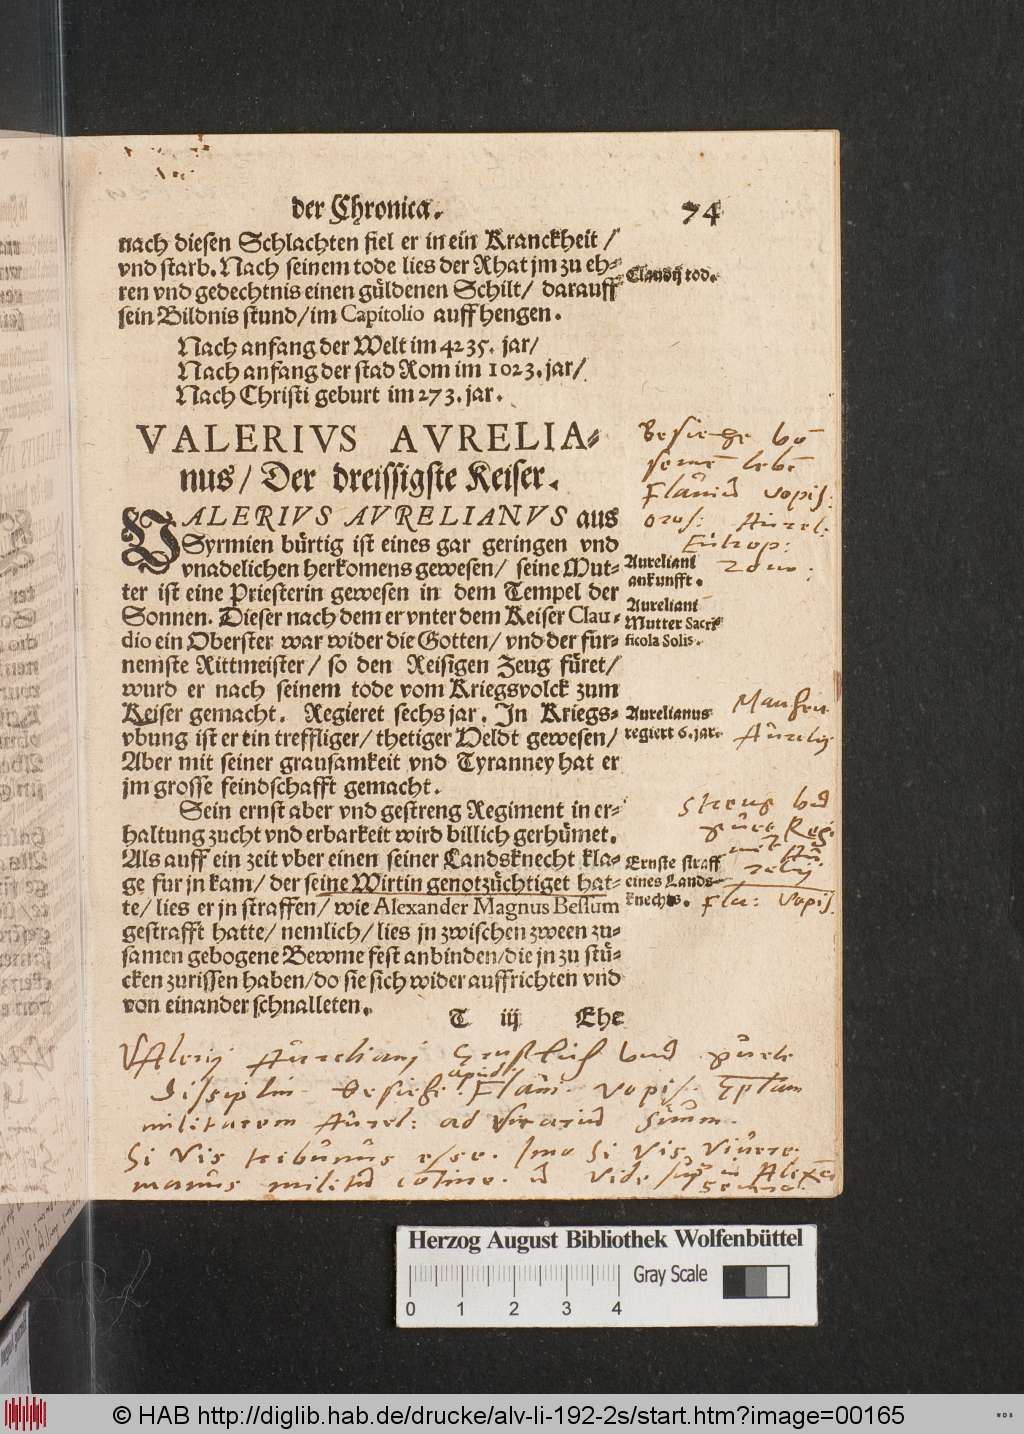 der Chronica. 74
nach diesen Schlachten fiel er in ein Kranckheit /
vnd starb. Nach seinem tode lies der Rhat jm zu eh-
ren vnd gedechtnis einen güldenen Schilt / darauff
sein Bildnis stund / im Capitolio auffhengen.
Claudij tod.
Nach anfang der Welt im 4235. jar /
Nach anfang der stad Rom im 1023. jar /
Nach Christi geburt im 273. jar.
VALERIVS AVRELIA-
nus / Der dreissigste Keiser.
VALERIVS AVRELIANVS aus
Syrmien bürtig ist eines gar geringen vnd
vnadelichen herkomens gewesen / seine Mut-
ter ist eine Priesterin gewesen in dem Tempel der
Sonnen. Dieser nach dem er vnter dem Keiser Clau-
dio ein Oberster war wider die Gotten / vnd der für-
nemste Rittmeister / so den Reisigen Zeug füret /
wurd er nach seinem tode vom Kriegsvolck zum
Keiser gemacht. Regieret sechs jar. In Kriegs-
vbung ist er ein treffliger / thetiger Heldt gewesen /
Aber mit seiner grausamkeit vnd Tyranney hat er
jm grosse feindschafft gemacht.
Aureliani
ankunfft.
Aureliani
Mutter Sacri-
ficola Solis.
Aurelianus
regiert 6. jar.
Sein ernst aber vnd gestreng Regiment in er-
haltung zucht vnd erbarkeit wird billich gerhümet.
Als auff ein zeit vber einen seiner Landsknecht kla-
ge für jn kam / der seine Wirtin genotzüchtiget hat-
te / lies er jn straffen / wie Alexander Magnus Bessum
gestrafft hatte / nemlich / lies jn zwischen zween zu-
samen gebogene Bewme fest anbinden / die jn zu stü-
cken zurissen haben / do sie sich wider auffrichten vnd
von einander schnalleten.
Ernste straff
eines Lands-
knechts.
T iij Ehe
vopis.
Aurel:
Eutrop:
Flu: Vopis.
Valerij Aureliani vnd
Flaui. vopis.
militarem Aurel: ad Vicarium Suum.
Si Vis tribunus esse. Imo Si Vis Viuere.
manus militum vide
Herzog August Bibliothek Wolfenbüttel
Gray Scale
0 1 2 3 4
© HAB http://diglib.hab.de/drucke/alv-li-192-2s/start.htm?image=00165
WDB